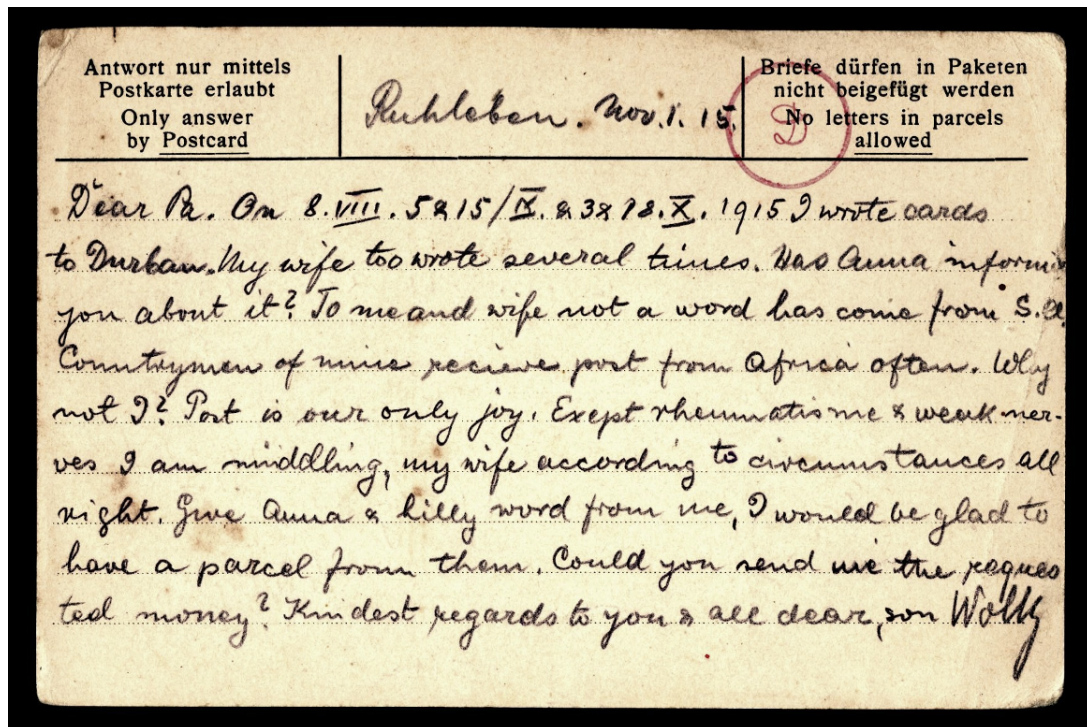 Antwort nur mittels
Postkarte erlaubt
Only answer
by Postcard
Ruhleben. Nov. 1. 15.
Briefe dürfen in Paketen
nicht beigefügt werden
No letters in parcels
allowed
D
Dear Pa. On 8.VIII. 5 & 15/IX. & 3 & 18.X. 1915 I wrote cards
to Durban. My wife too wrote several times. Has Anna inform
you about it? To me and wife not a word has come from S.A.
Countrymen of mine recieve post from Africa often. Why
not I? Post is our only joy. Exept rheumatisme & weak ner-
ves I am middling, my wife according to circumstances all
right. Give Anna & Lilly word from me, I would be glad to
have a parcel from them. Could you send me the reques
ted money? Kindest regards to you & all dear, son